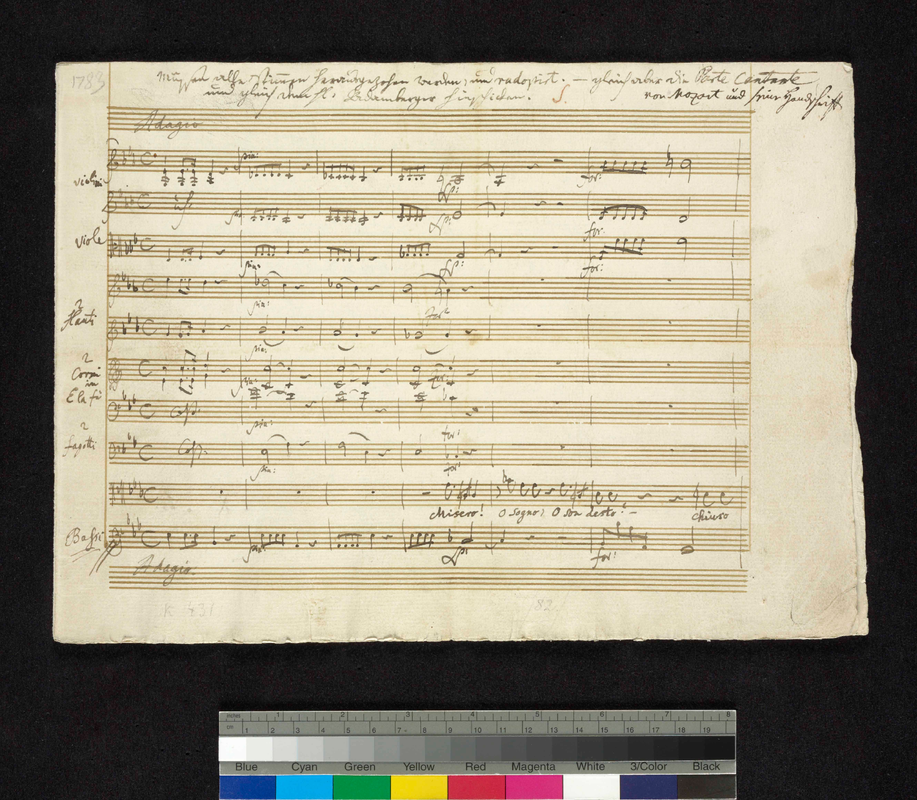 1783
müssen alle Stimmen herausgezohen werden, und radopirt. — gleich aber die Parte Cantante
und gleich dem H: Adamberger hinschicken.
von Mozart und seine Handschrift
Adagio
violini
pia:
for:
viole
for:
pia:
for:
pia:
2
flauti
pia:
2
Corni
in
Elafà
pia:
2
fagotti
for:
pia:
for:
Misero! O sogno! O son desto? — chiuso
Bassi
for:
Adagio.
K 431
82
mm
1 2 3 4 5 6 7 8
cm
1 2 3 4 5 6 7 8 9 10 11 12 13 14 15 16 17 18 19
Blue Cyan Green Yellow Red Magenta White 3/Color Black